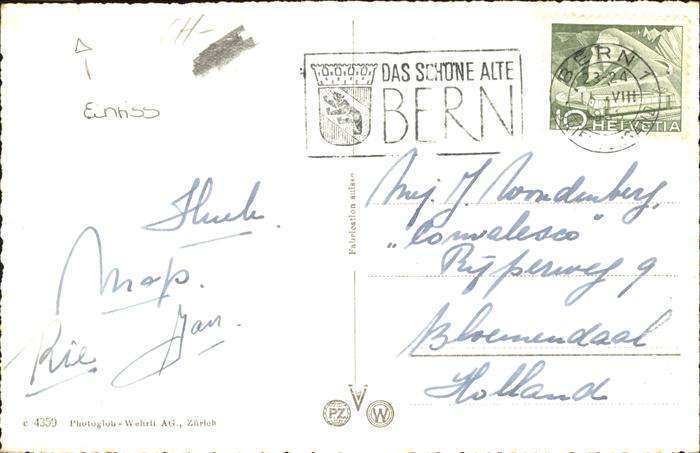 CH-
Einriss
DAS SCHÖNE ALTE
BERN
BERN 1
23-24
VIII
10 HELVETIA
Fabrication suisse
Mej. J. Woudenberg,
„Convalesco"
Rijperweg 9
Bloemendaal
Holland
Huub.
Map.
Rie Jan.
c 4359 Photoglob-Wehrli AG., Zürich
PZ W